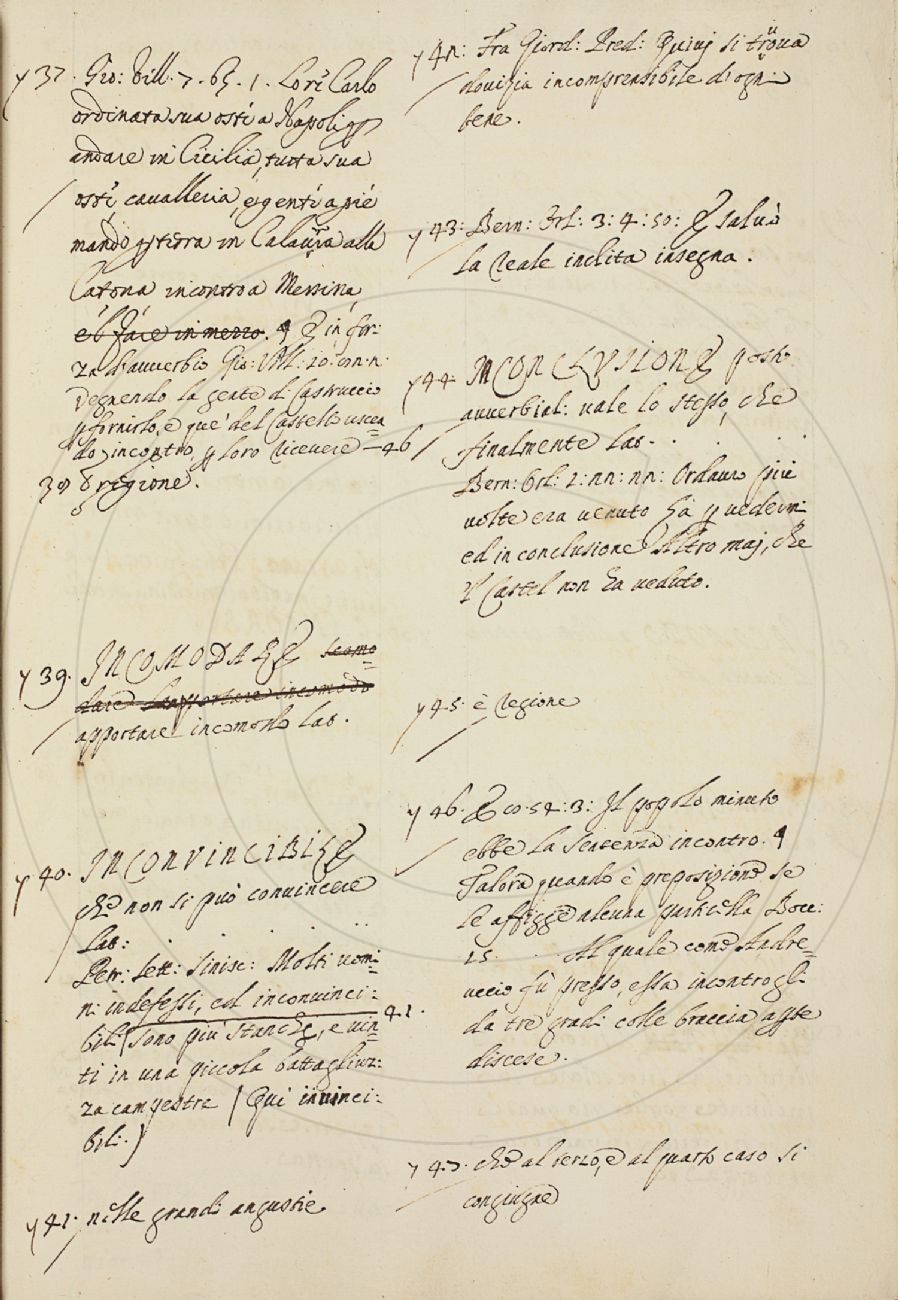 37. Gio: Vill. 7. 65. 1. Lo Rè Carlo
ordinata sua oste a Napoli p
andare in Cicilia, tutta sua
oste cavalleria, e gente a piè
mandò p terra in Calavria alla
Catona incontro a Messina,
è'l Fare in mezzo. ¶ E in for:
za d'avverbio Gio: Vill: 10:
Vegnendo la gente di Castruccio
p fornirlo, e que' del Castello uscen
do incontro, p loro ricevere — 46
39 regione.
39. INCOMODARE scomo
dare apportare incomodo
apportare incomodo Lat.
40. INCONVINCIBILE
che non si può convincere
Lat: . . . . .
Petr: Sett: Sinisc: Molti uomi
ni indefessi, ed inconvinci:
bili sono più stanchi, e vin 41.
ti in una piccola battagliuz:
za campestre (Qui invinci:
bili.)
41. nelle grandi angustie
42: Fra Giord: Pred: Quivi si truova
dovizia incomprensibile d'ogni
bene.
43: Bern: Orl: 3: 4: 50: E salvò
la reale inclita insegna.
44. IN CONCLVSIONE posto
avverbial: vale lo stesso, che
finalmente Lat. . . . .
Bern: Orl: 2: nn: nn: Ordauro più
volte era venuto là p vederni
ed in conclusione Altro maj, che
'l Castel non ha veduto.
45. è regione
46. E co. 54: 3: Il popolo minuto
ebbe la Sentenza incontro. ¶
Talora quando è preposizione se
le affigge alcuna particella Bocc:
15. . . Al quale come Andre
uccio fù presso, essa incontrogli
da tre gradi colle braccia apte
discese.
47. che al terzo, e al quarto caso si
congiugne